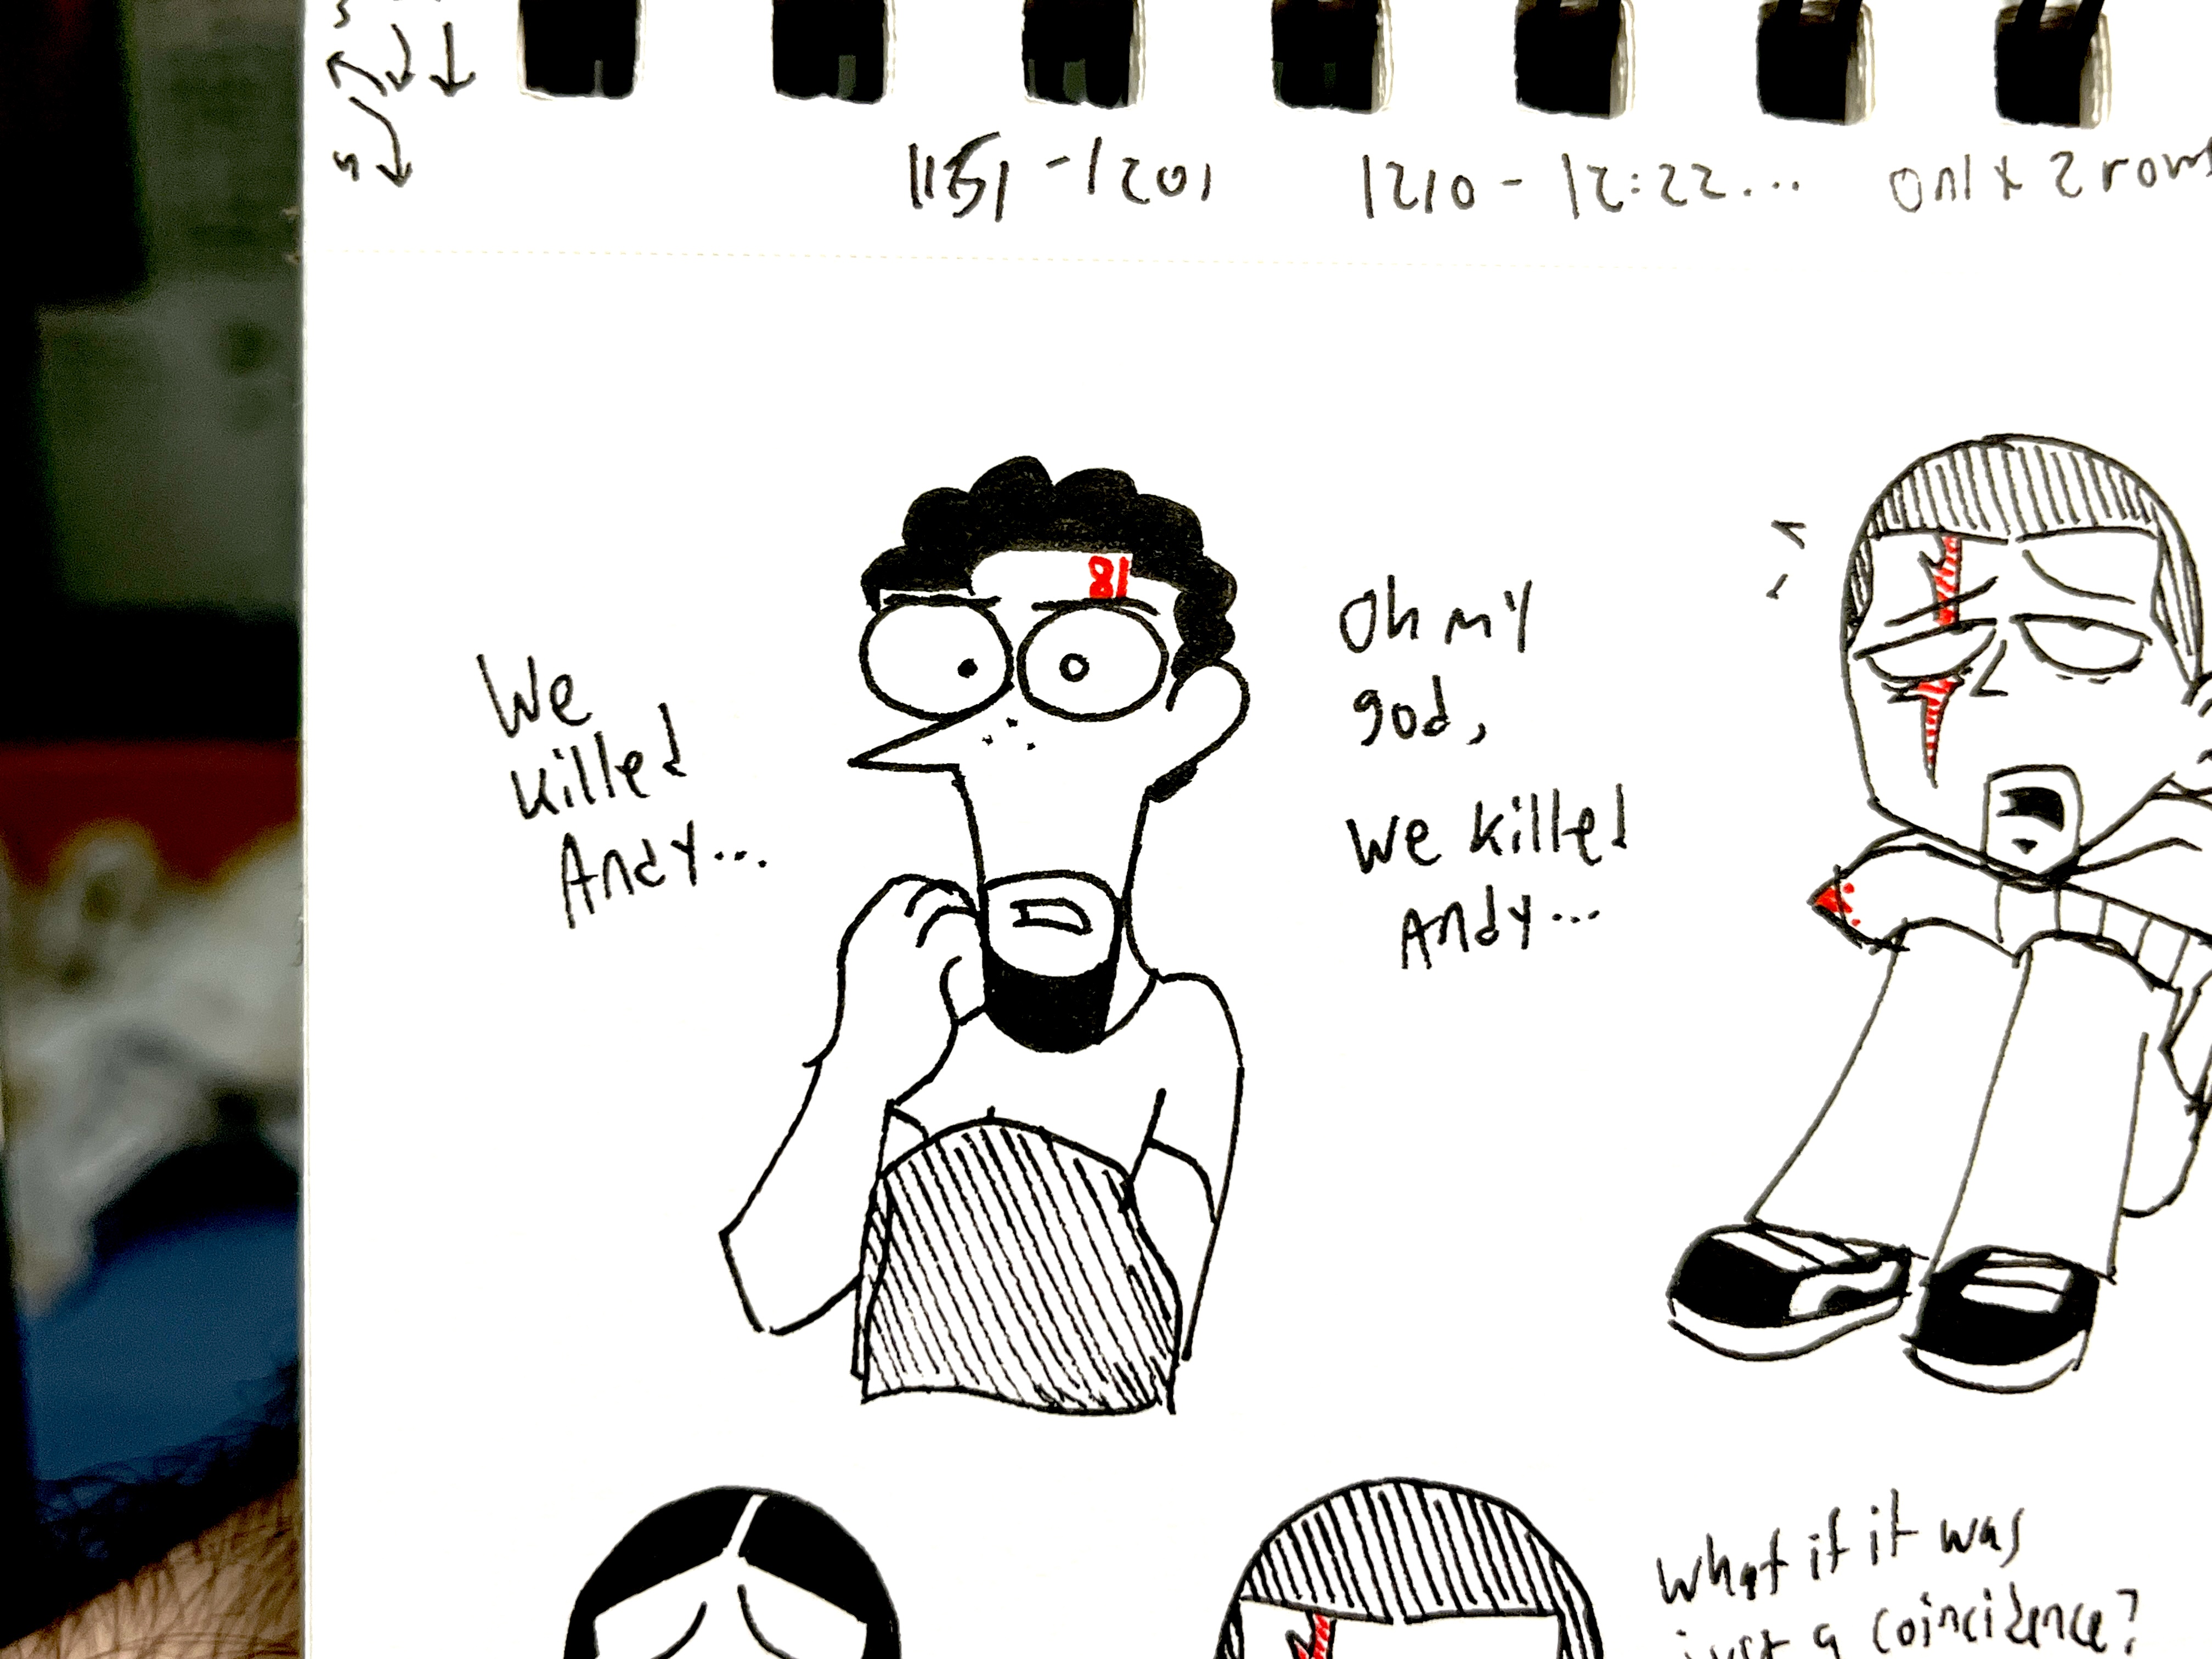 1151 - 1201
1210 - 12:22...
Only 2 rows
81
We
killed
Andy...
Oh my
god,
we killed
Andy...
What if it was
just a coincidence?